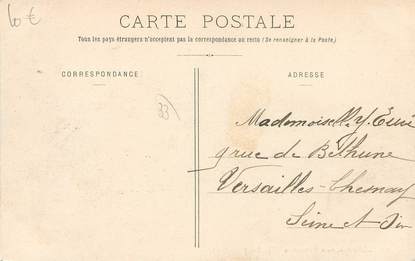 60 €
CARTE POSTALE
Tous les pays étrangers n'acceptent pas la correspondance au recto (Se renseigner à la Poste)
CORRESPONDANCE
ADRESSE
33
Mademoiselle Y.
9 rue de Béthune
Versailles-Chesnay
Seine et